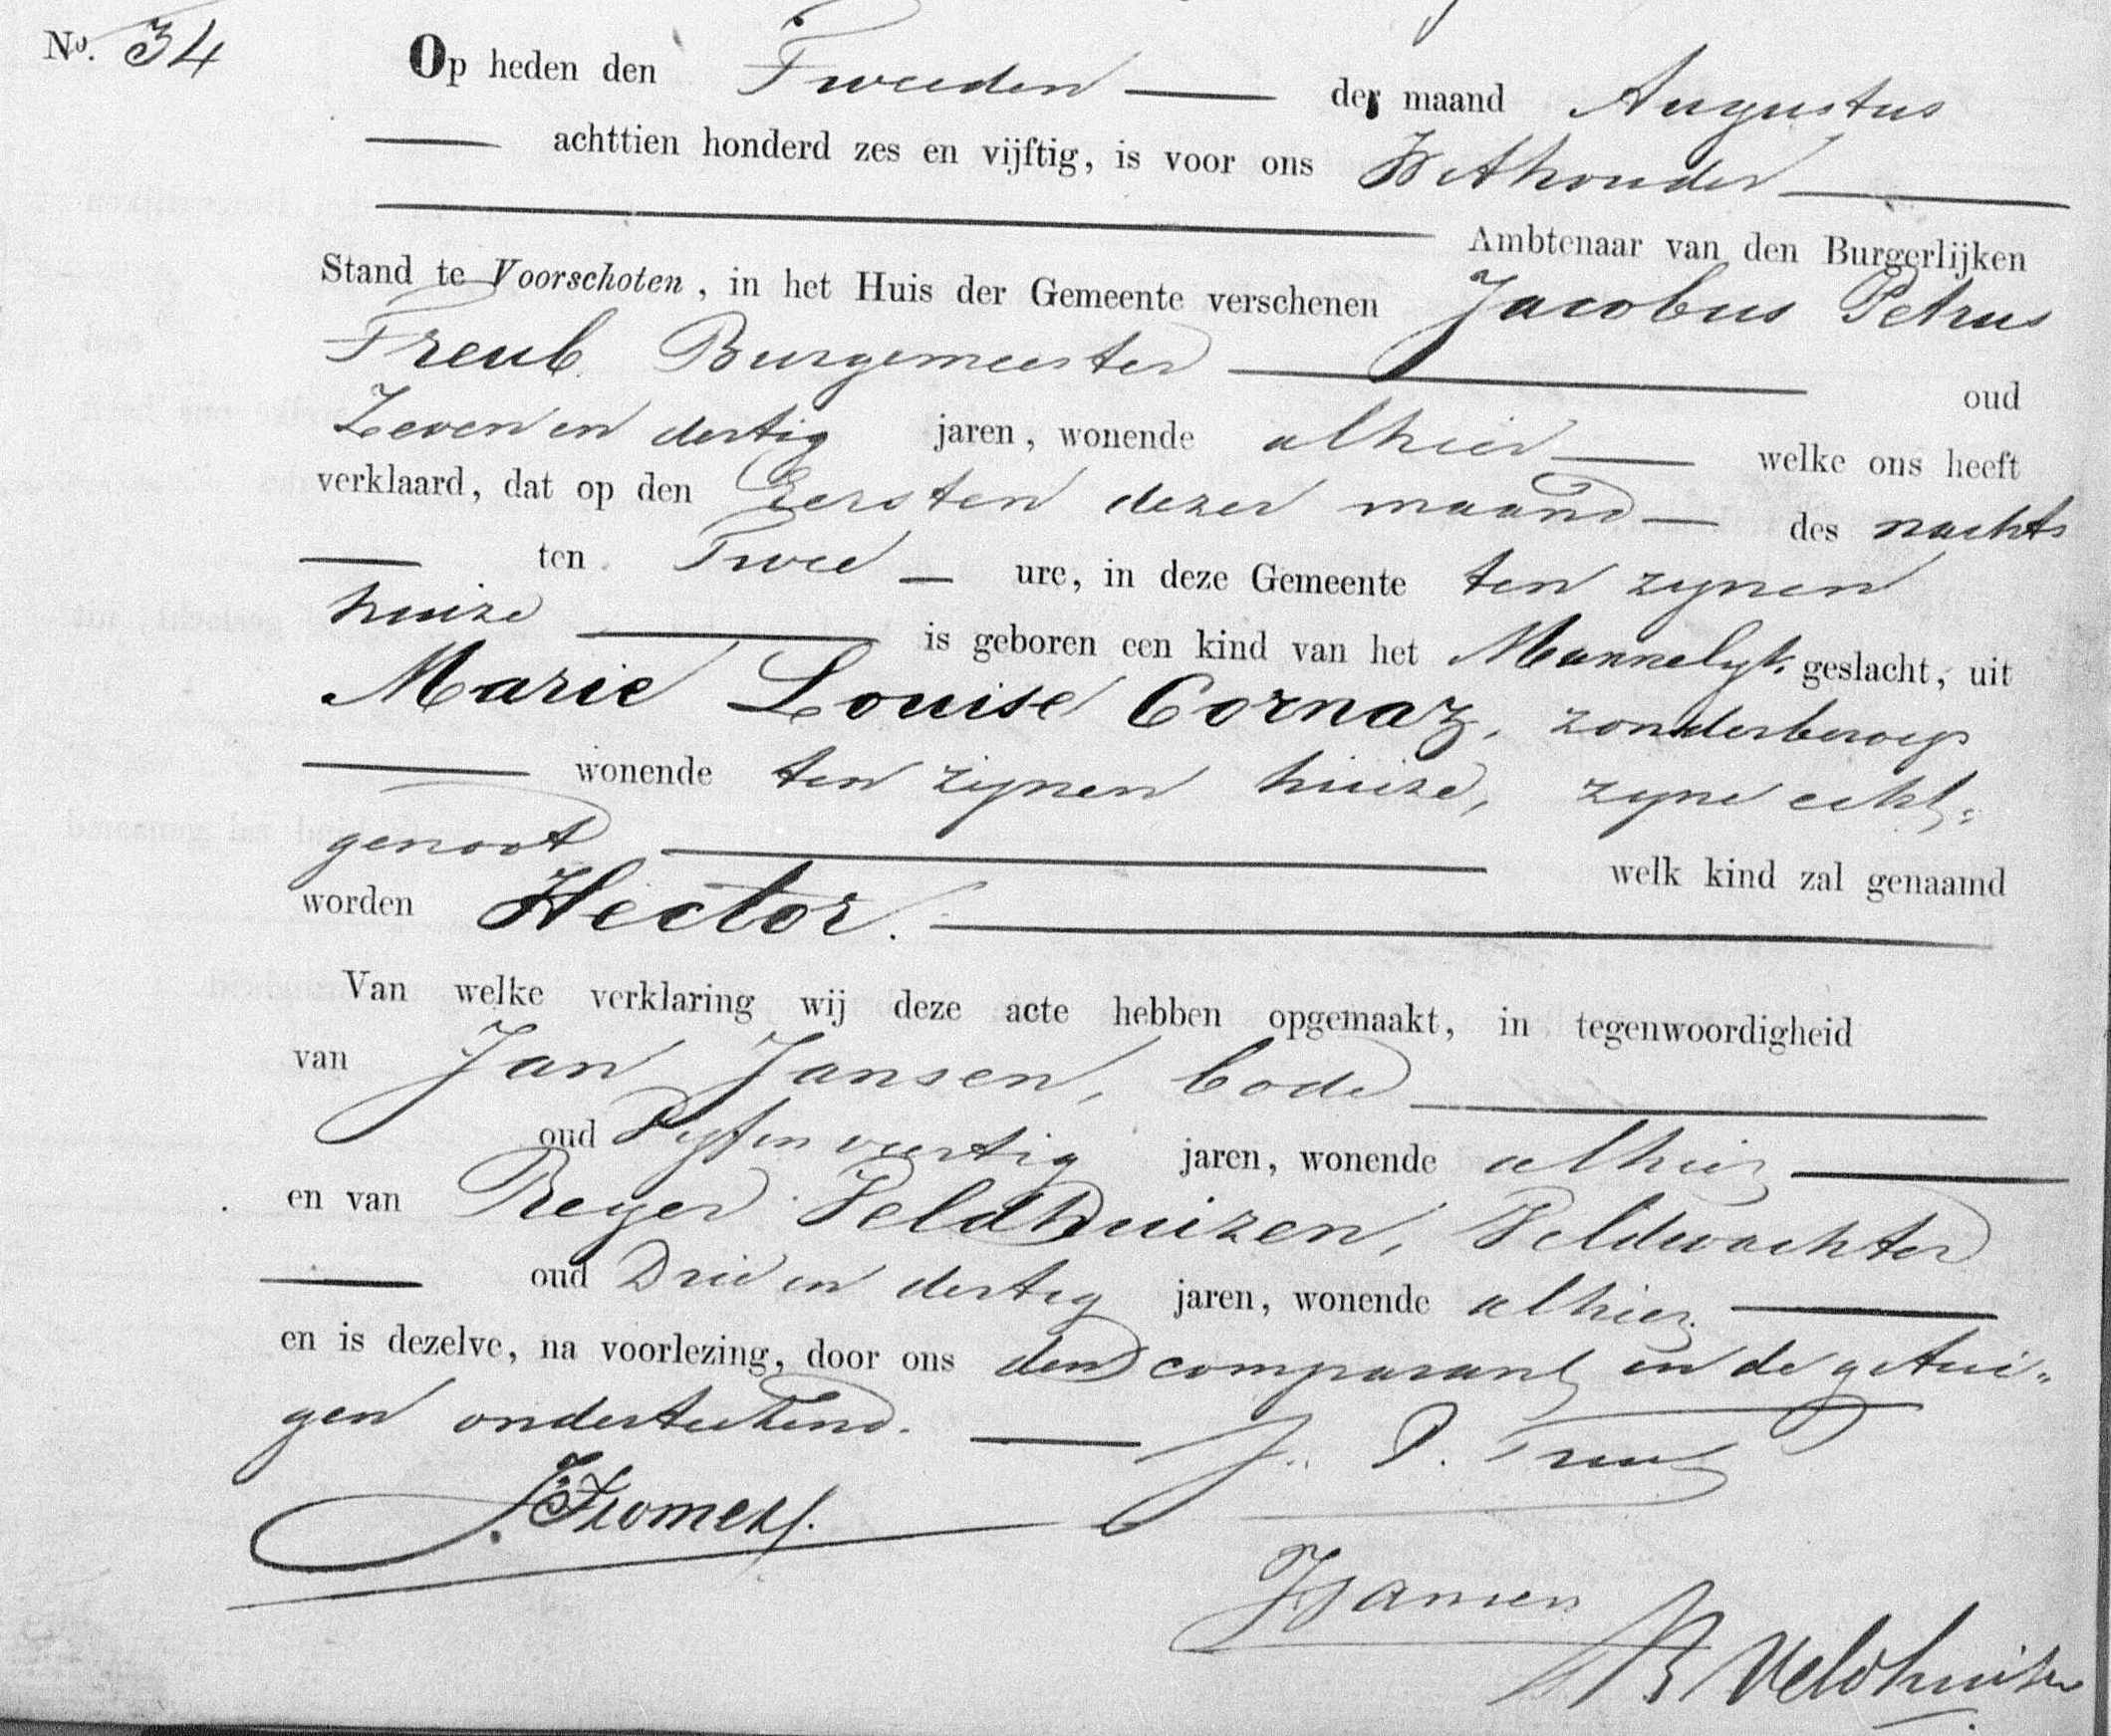 No. 34
Op heden den Tweeden der maand Augustus
achttien honderd zes en vijftig, is voor ons Wethouder
Ambtenaar van den Burgerlijken
Stand te Voorschoten, in het Huis der Gemeente verschenen Jacobus Petrus
Treub Burgemeester oud
Zeven en dertig jaren, wonende alhier welke ons heeft
verklaard, dat op den Eersten dezer maand des nachts
ten Twee ure, in deze Gemeente ten zynen
huize is geboren een kind van het Mannelyk geslacht, uit
Marie Louise Cornaz, zonder beroep
wonende ten zijnen huize, zyne echt=
genoot welk kind zal genaamd
worden Hector.
Van welke verklaring wij deze acte hebben opgemaakt, in tegenwoordigheid
van Jan Jansen, bode
oud Vyf en veertig jaren, wonende alhier
en van Reyer Veldhuizen, Veldwachter
oud Drie en dertig jaren, wonende alhier.
en is dezelve, na voorlezing, door ons den comparant en de getui=
gen onderteekend.
J. P. Treub
JJansen
R Veldhuizen